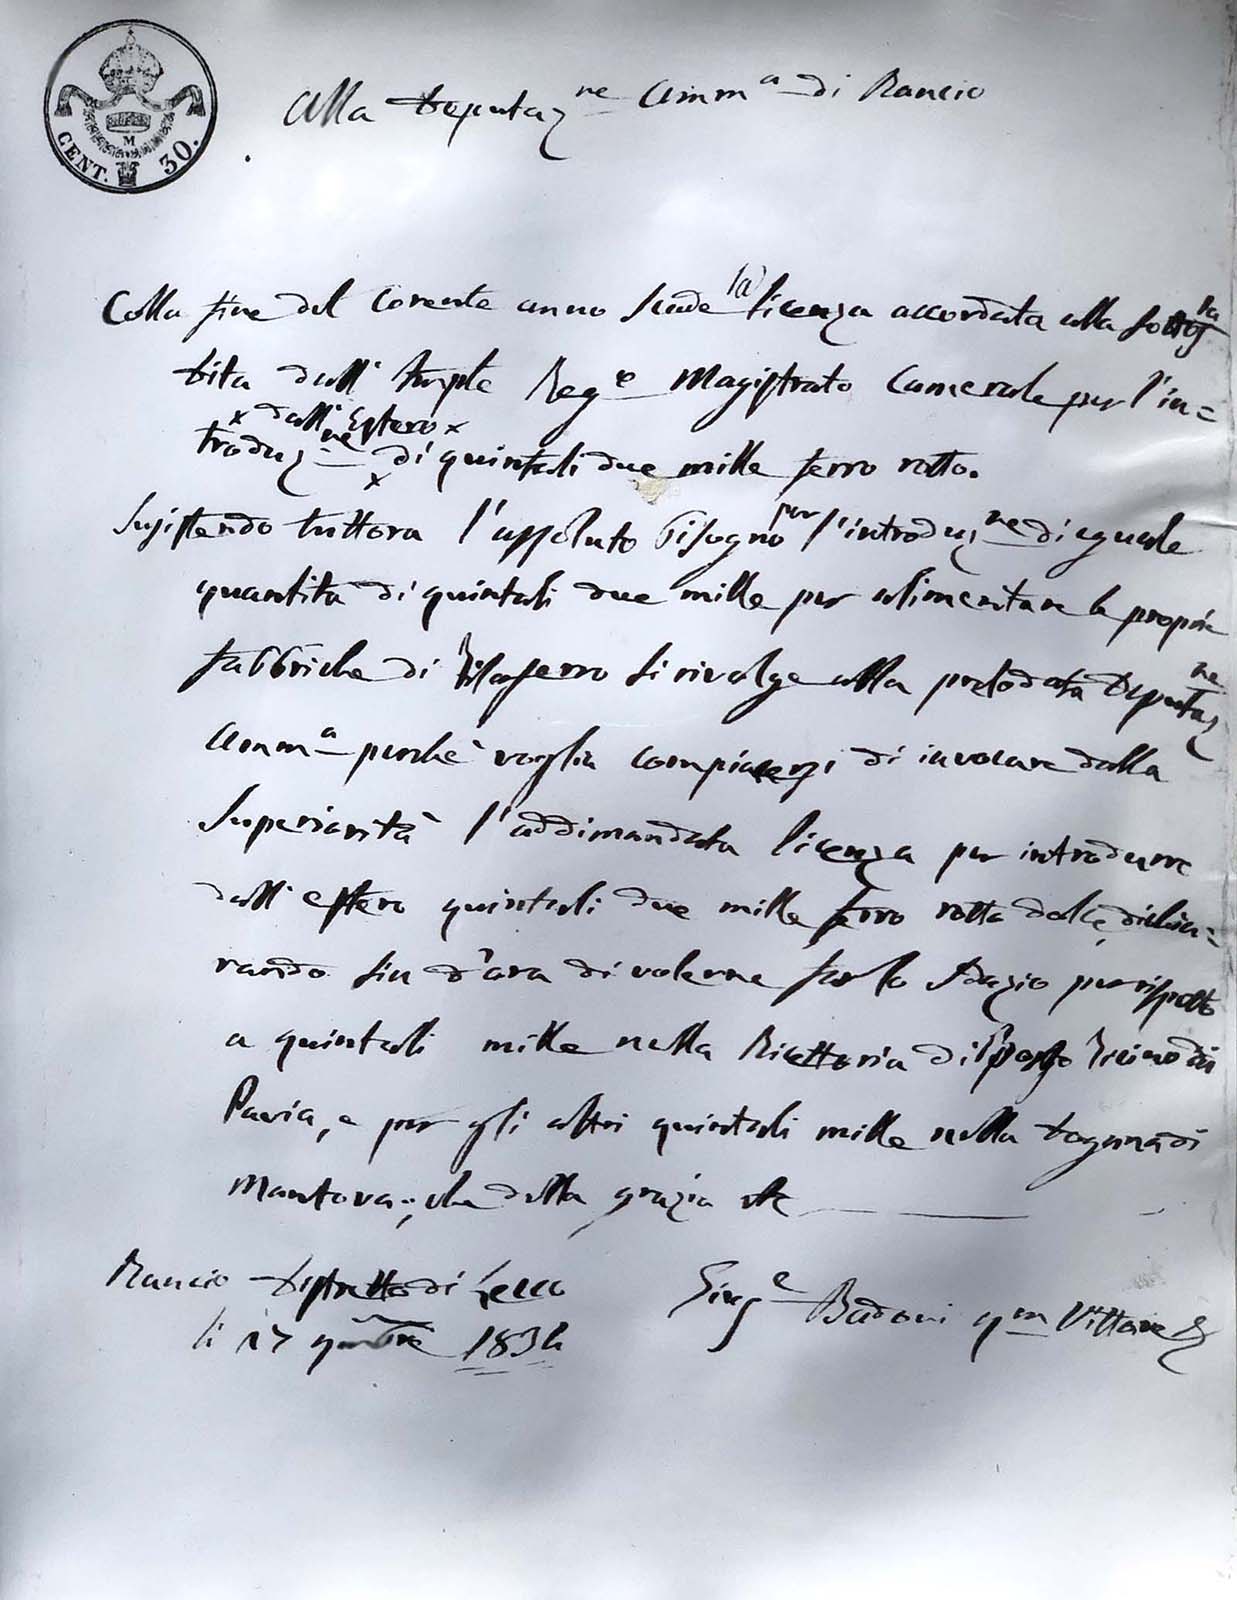 M
CENT. 30.
Alla Deputaz.ne Amm.a di Rancio
Colla fine del corente anno scade la licenza accordata alla
dall' Imple Reg.e Magistrato Camerale per l'in=
dall'Estero
troduz.ne di quintali due mille ferro rotto.
Susistendo tuttora l'assoluto bisogno per l'introduz.ne di eguale
quantità di quintali due mille per alimentare le proprie
fabbriche di filoferro si rivolge alla prelodata Deputaz.ne
Amm.a perchè voglia compiacersi di invocare dalla
Superiorità l'addimandata licenza per introdurre
dall'estero quintali due mille ferro rotto dolce, dichia=
rando sin d'ora di volerne far lo Sdazio per rispetto
a quintali mille nella Ricettoria di Ticino di
Pavia, e per gli altri quintali mille nella Dogana di
Mantova; che della grazia etc
Rancio Distretto di Lecco
li 17 9mbre 1834
Gius.e Badoni qm Vittore